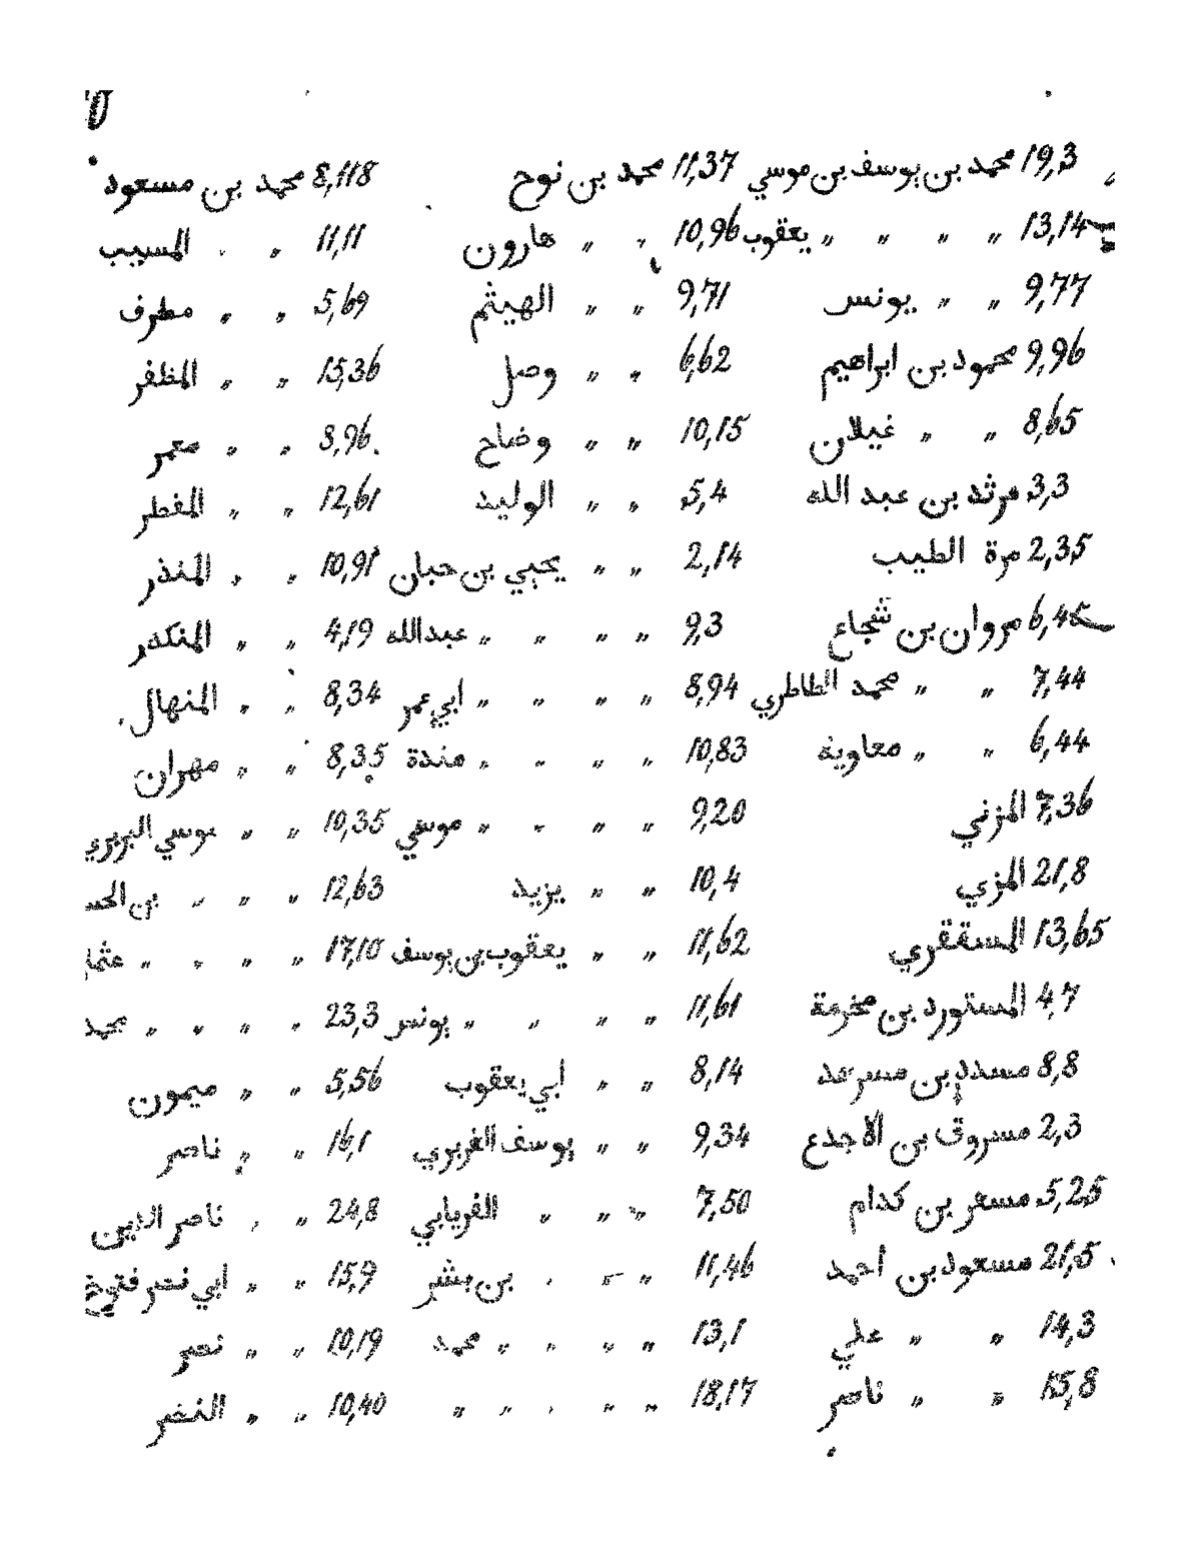 19,3 محمد بن يوسف بن موسي 11,37 محمد بن نوح 8,118 محمد بن مسعود
13,14 " " " " يعقوب 10,96 " " هارون 11,11 " " المسيب
9,77 " " يونس 9,71 " " الهيثم 5,69 " " مطرف
9,96 محمود بن ابراهيم 6,62 " " وصل 15,36 " " المظفر
8,65 " " غيلان 10,15 " " وضاح 8,96 " " معمر
3,3 مرثد بن عبد الله 5,4 " " الوليد 12,61 " " المفطر
2,35 مرة الطيب 2,14 " " يحيي بن حبان 10,91 " " المنذر
6,45 مروان بن شجاع 9,3 " " " " عبدالله 4,19 " " المنكدر
7,44 " " محمد الطاطري 8,94 " " " " ابي عمر 8,34 " " المنهال
6,44 " " معاوية 10,83 " " " " مندة 8,35 " " مهران
7,36 المزني 9,20 " " " " موسي 10,35 " " موسي البربري
21,8 المزي 10,4 " " يزيد 12,63 " " " " بن الحس
13,65 المسققري 11,62 " " يعقوب بن يوسف 17,10 " " " " عثما
4,7 المستورد بن مخرمة 11,61 " " " " يونس 23,3 " " " " محمد
8,8 مسدد بن مسرهد 8,14 " " ابي يعقوب 5,56 " " ميمون
2,3 مسروق بن الاجدع 9,34 " " يوسف الفربري 16,1 " " ناصر
5,25 مسعر بن كدام 7,50 " " " الفريابي 24,8 " " ناصر الدين
21,5 مسعود بن احمد 11,46 " " " بن بشر 15,9 " " ابي نصر فتوح
14,3 " " علي 13,1 " " " " محمد 10,19 " " نصر
15,8 " " ناصر 18,17 " " " " " 10,40 " " النضر